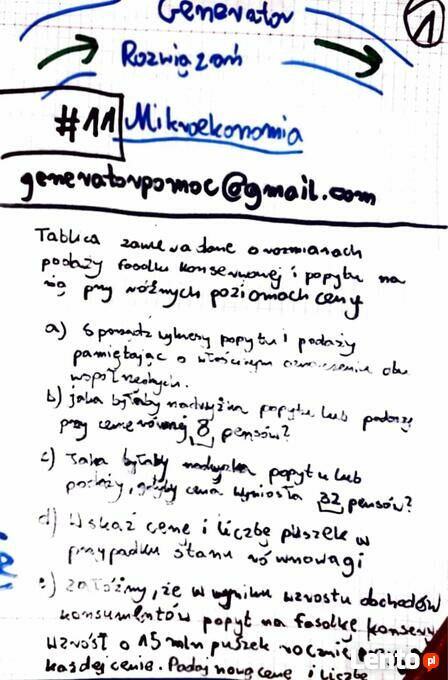 Generator
1
Rozwiązań
#11 Mikroekonomia
generatorpomoc@gmail.com
Tablica zawiera dane o rozmiarach
podaży fasolki konserwowej i popytu na
nią przy różnych poziomach ceny
a) Sporządź wykresy popytu i podaży
pamiętając o właściwym oznaczeniu osi
współrzędnych.
b) jaka byłaby nadwyżka popytu lub podaży
przy cenie równej 8 pensów?
c) Jaka byłaby nadwyżka popytu lub
podaży, gdyby cena wynosiła 32 pensów?
d) Wskaż cenę i liczbę puszek w
przypadku stanu równowagi
e) załóżmy, że w wyniku wzrostu dochodów
konsumentów popyt na fasolkę konserw
wzrósł o 15 mln puszek rocznie
każdej cenie. Podaj nową cenę i liczbę
Lento.pl